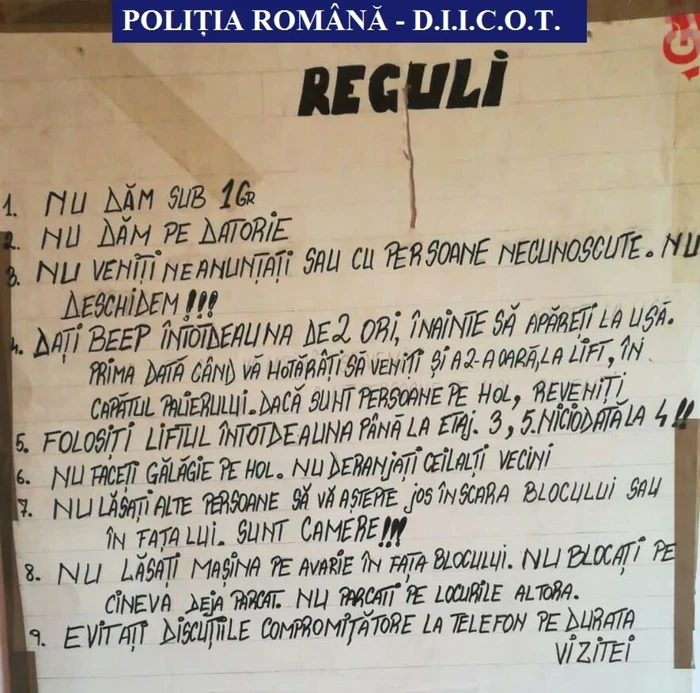 POLIȚIA ROMÂNĂ - D.I.I.C.O.T.
REGULI
1. NU DĂM SUB 1GR
2. NU DĂM PE DATORIE
3. NU VENIȚI NEANUNȚAȚI SAU CU PERSOANE NECUNOSCUTE. NU
DESCHIDEM!!!
4. DAȚI BEEP ÎNTOTDEAUNA DE 2 ORI, ÎNAINTE SĂ APĂREȚI LA UȘĂ.
PRIMA DATĂ CÂND VĂ HOTĂRÂȚI SĂ VENITI ȘI A 2-A OARĂ, LA LIFT, ÎN
CAPĂTUL PALIERULUI. DACĂ SUNT PERSOANE PE HOL, REVENIȚI
5. FOLOSIȚI LIFTUL ÎNTOTDEAUNA PÂNĂ LA ETAJ. 3, 5. NICIODATĂ LA 4!!
6. NU FACETI GĂLĂGIE PE HOL. NU DERANJAȚI CEILALȚI VECINI
7. NU LĂSAȚI ALTE PERSOANE SĂ VĂ AȘTEPTE JOS ÎN SCARA BLOCULUI SAU
ÎN FAȚA LUI. SUNT CAMERE!!!
8. NU LĂSAȚI MAȘINA PE AVARIE ÎN FAȚA BLOCULUI. NU BLOCAȚI PE
CINEVA DEJA PARCAT. NU PARCATI PE LOCURILE ALTORA.
9. EVITAȚI DISCUȚIILE COMPROMIȚĂTORE LA TELEFON PE DURATA
VIZITEI